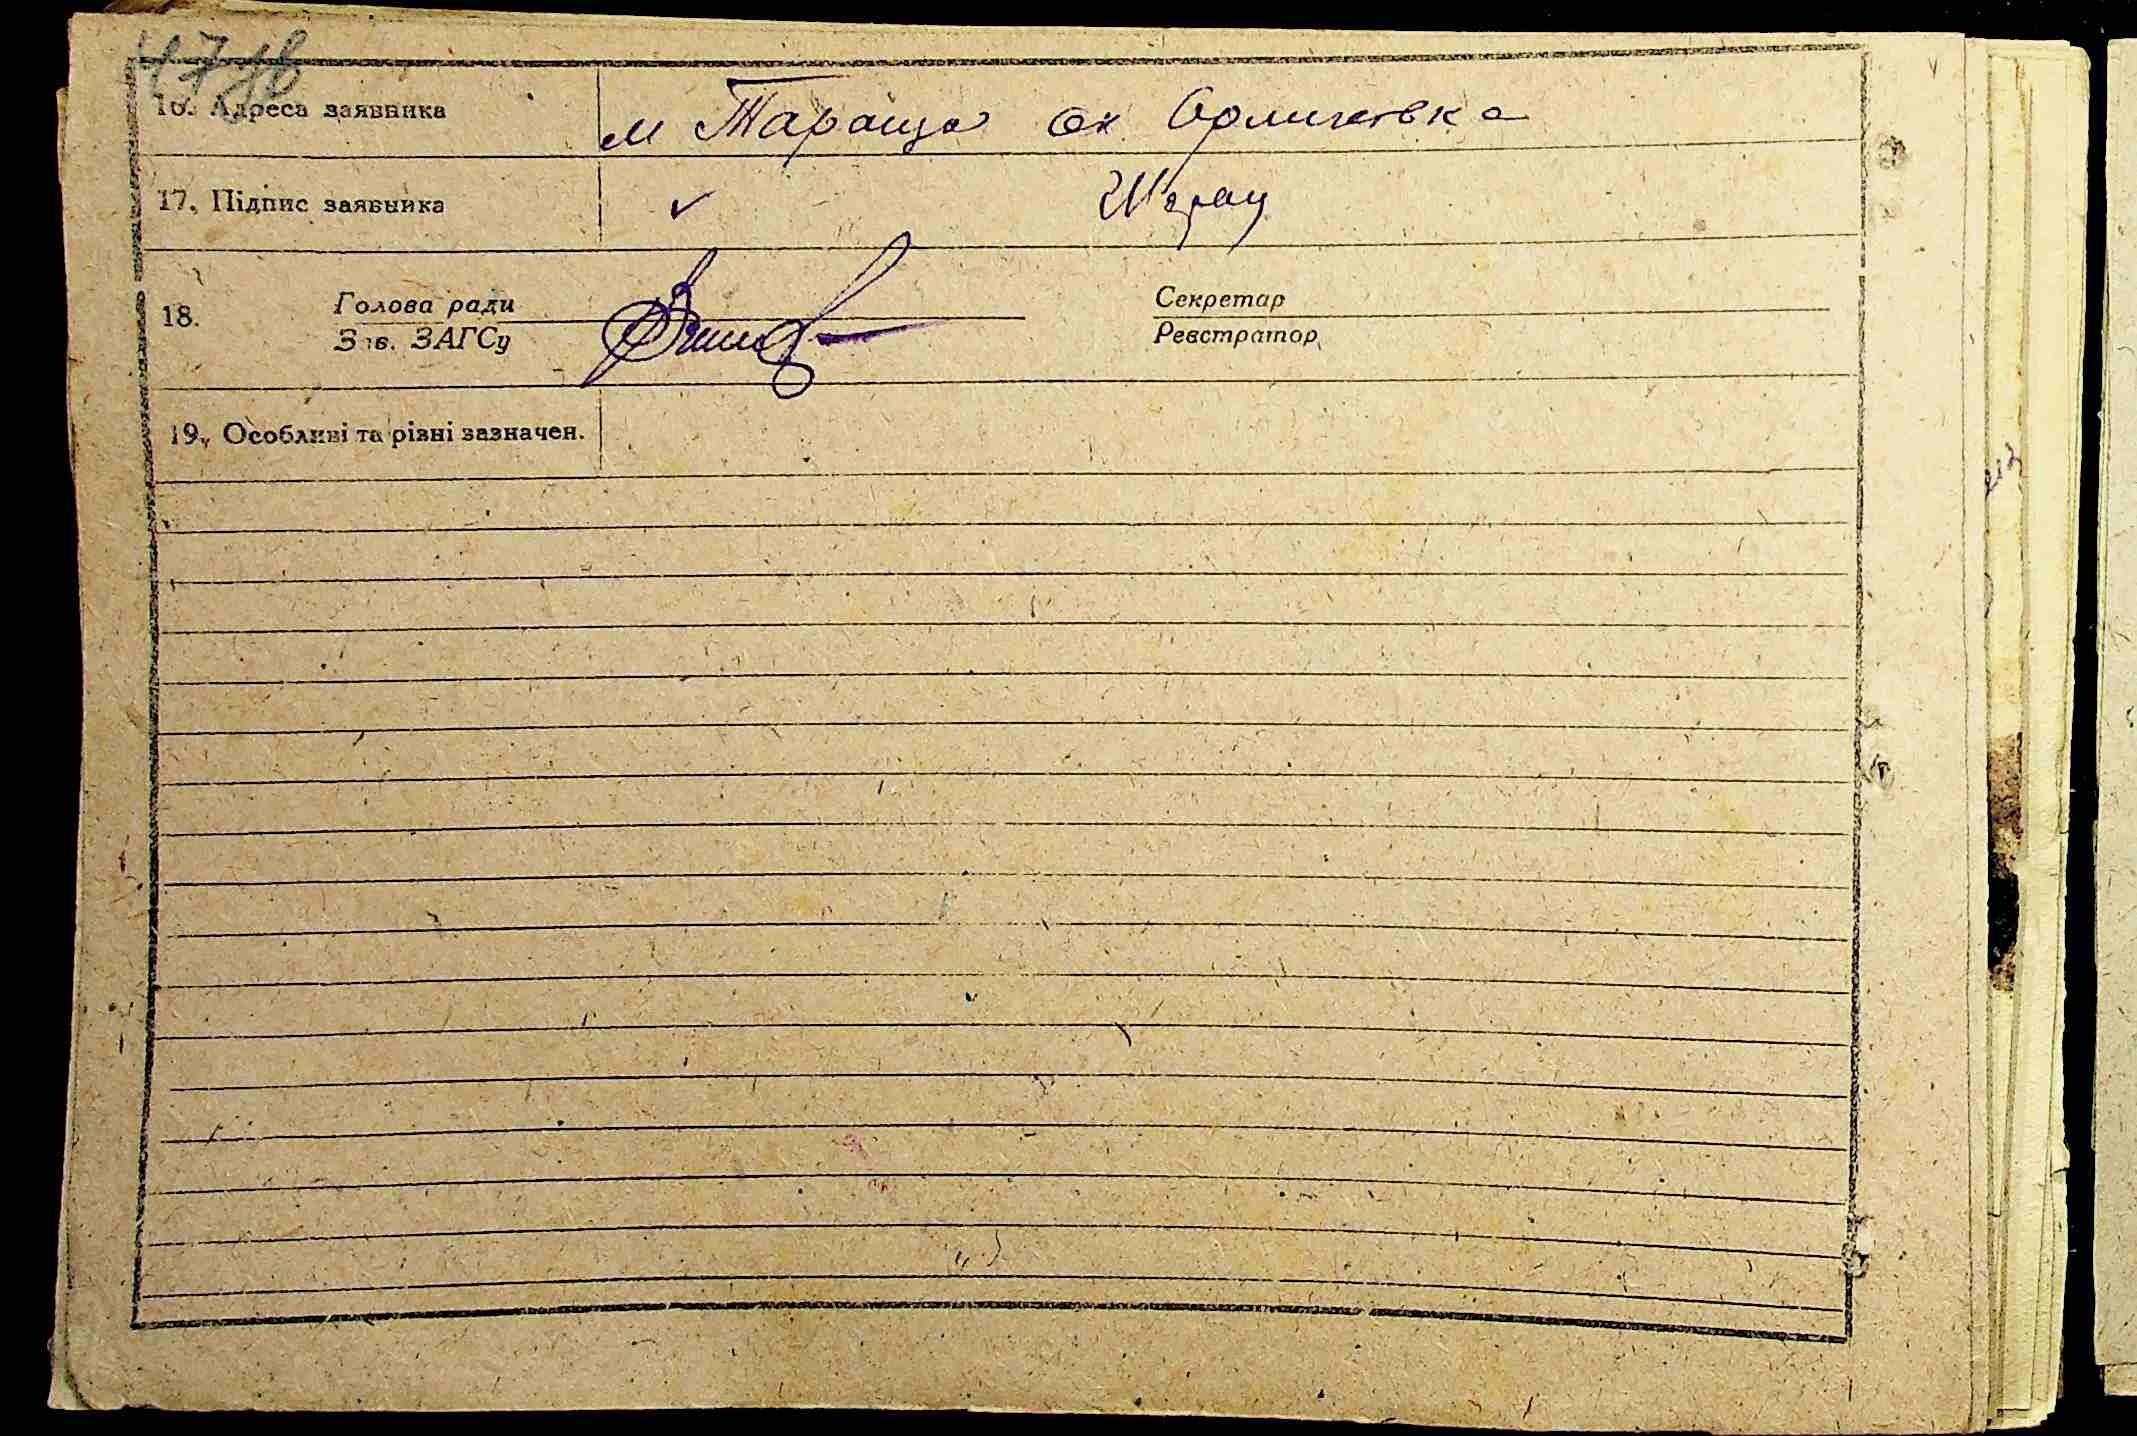 47 зв
16. Адреса заявника м Тараща ок Орлиховка
17. Підпис заявника ✓
18. Голова ради Секретар
Зав. ЗАГСу Реєстратор
19. Особливі та різні зазначен.